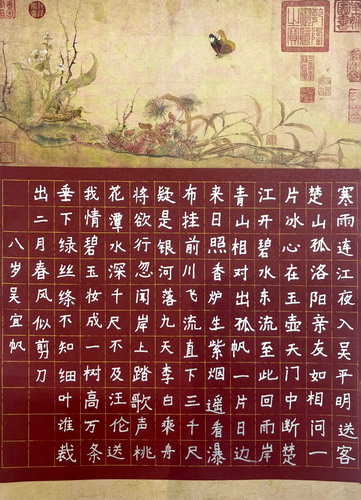 寒雨连江夜入吴平明送客
楚山孤洛阳亲友如相问一
片冰心在玉壶天门中断楚
江开碧水东流至此回两岸
青山相对出孤帆一片日边
来日照香炉生紫烟遥看瀑
布挂前川飞流直下三千尺
疑是银河落九天李白乘舟
将欲行忽闻岸上踏歌声桃
花潭水深千尺不及汪伦送
我情碧玉妆成一树高万条
垂下绿丝绦不知细叶谁裁
出二月春风似剪刀
八岁吴宜帆